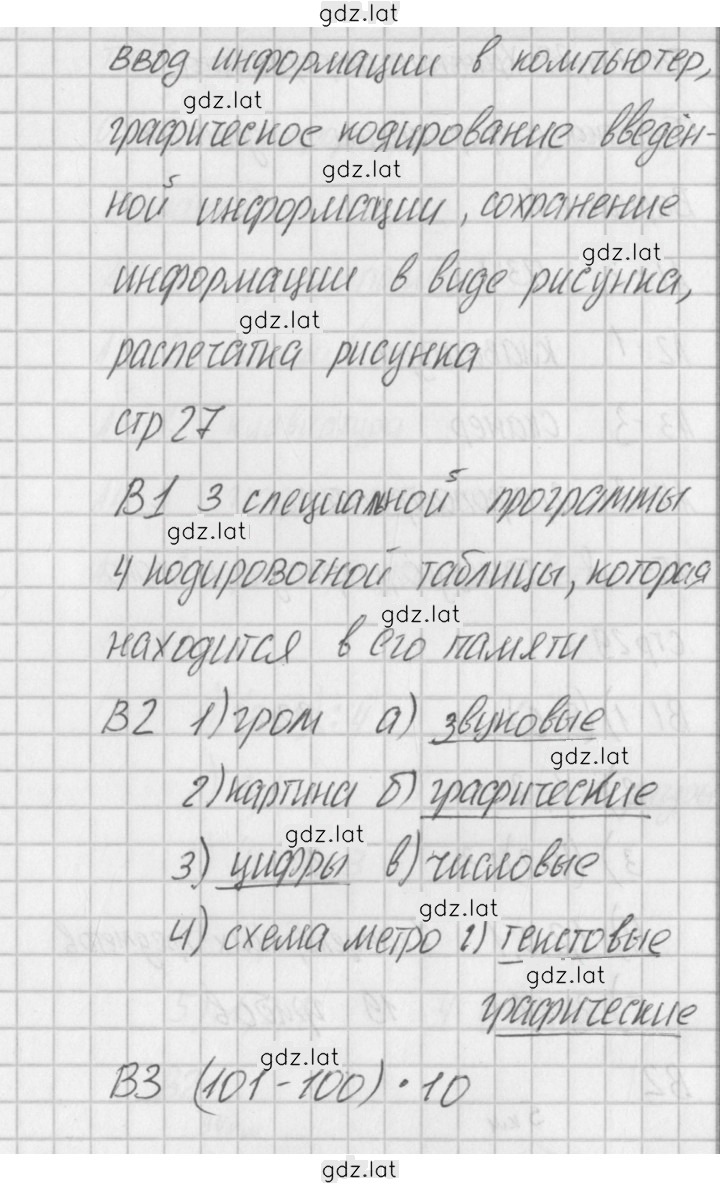 gdz.lat
ввод информации в компьютер,
gdz.lat
графическое кодирование введён-
gdz.lat
ной информации, сохранение
gdz.lat
информации в виде рисунка,
gdz.lat
распечатка рисунка
стр 27
В1 3 специальной программы
gdz.lat
4 кодировочной таблицы, которая
gdz.lat
находится в его памяти
В2 1) гром а) звуковые
gdz.lat
2) картина б) графические
gdz.lat
3) цифры в) числовые
gdz.lat
4) схема метро г) текстовые
gdz.lat
графические
gdz.lat
В3 (101-100)·10
gdz.lat